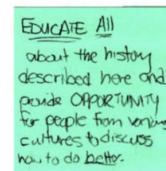 EDUCATE All
about the history
described here and
provide OPPORTUNITY
for people from various
cultures to discuss
how to do better.